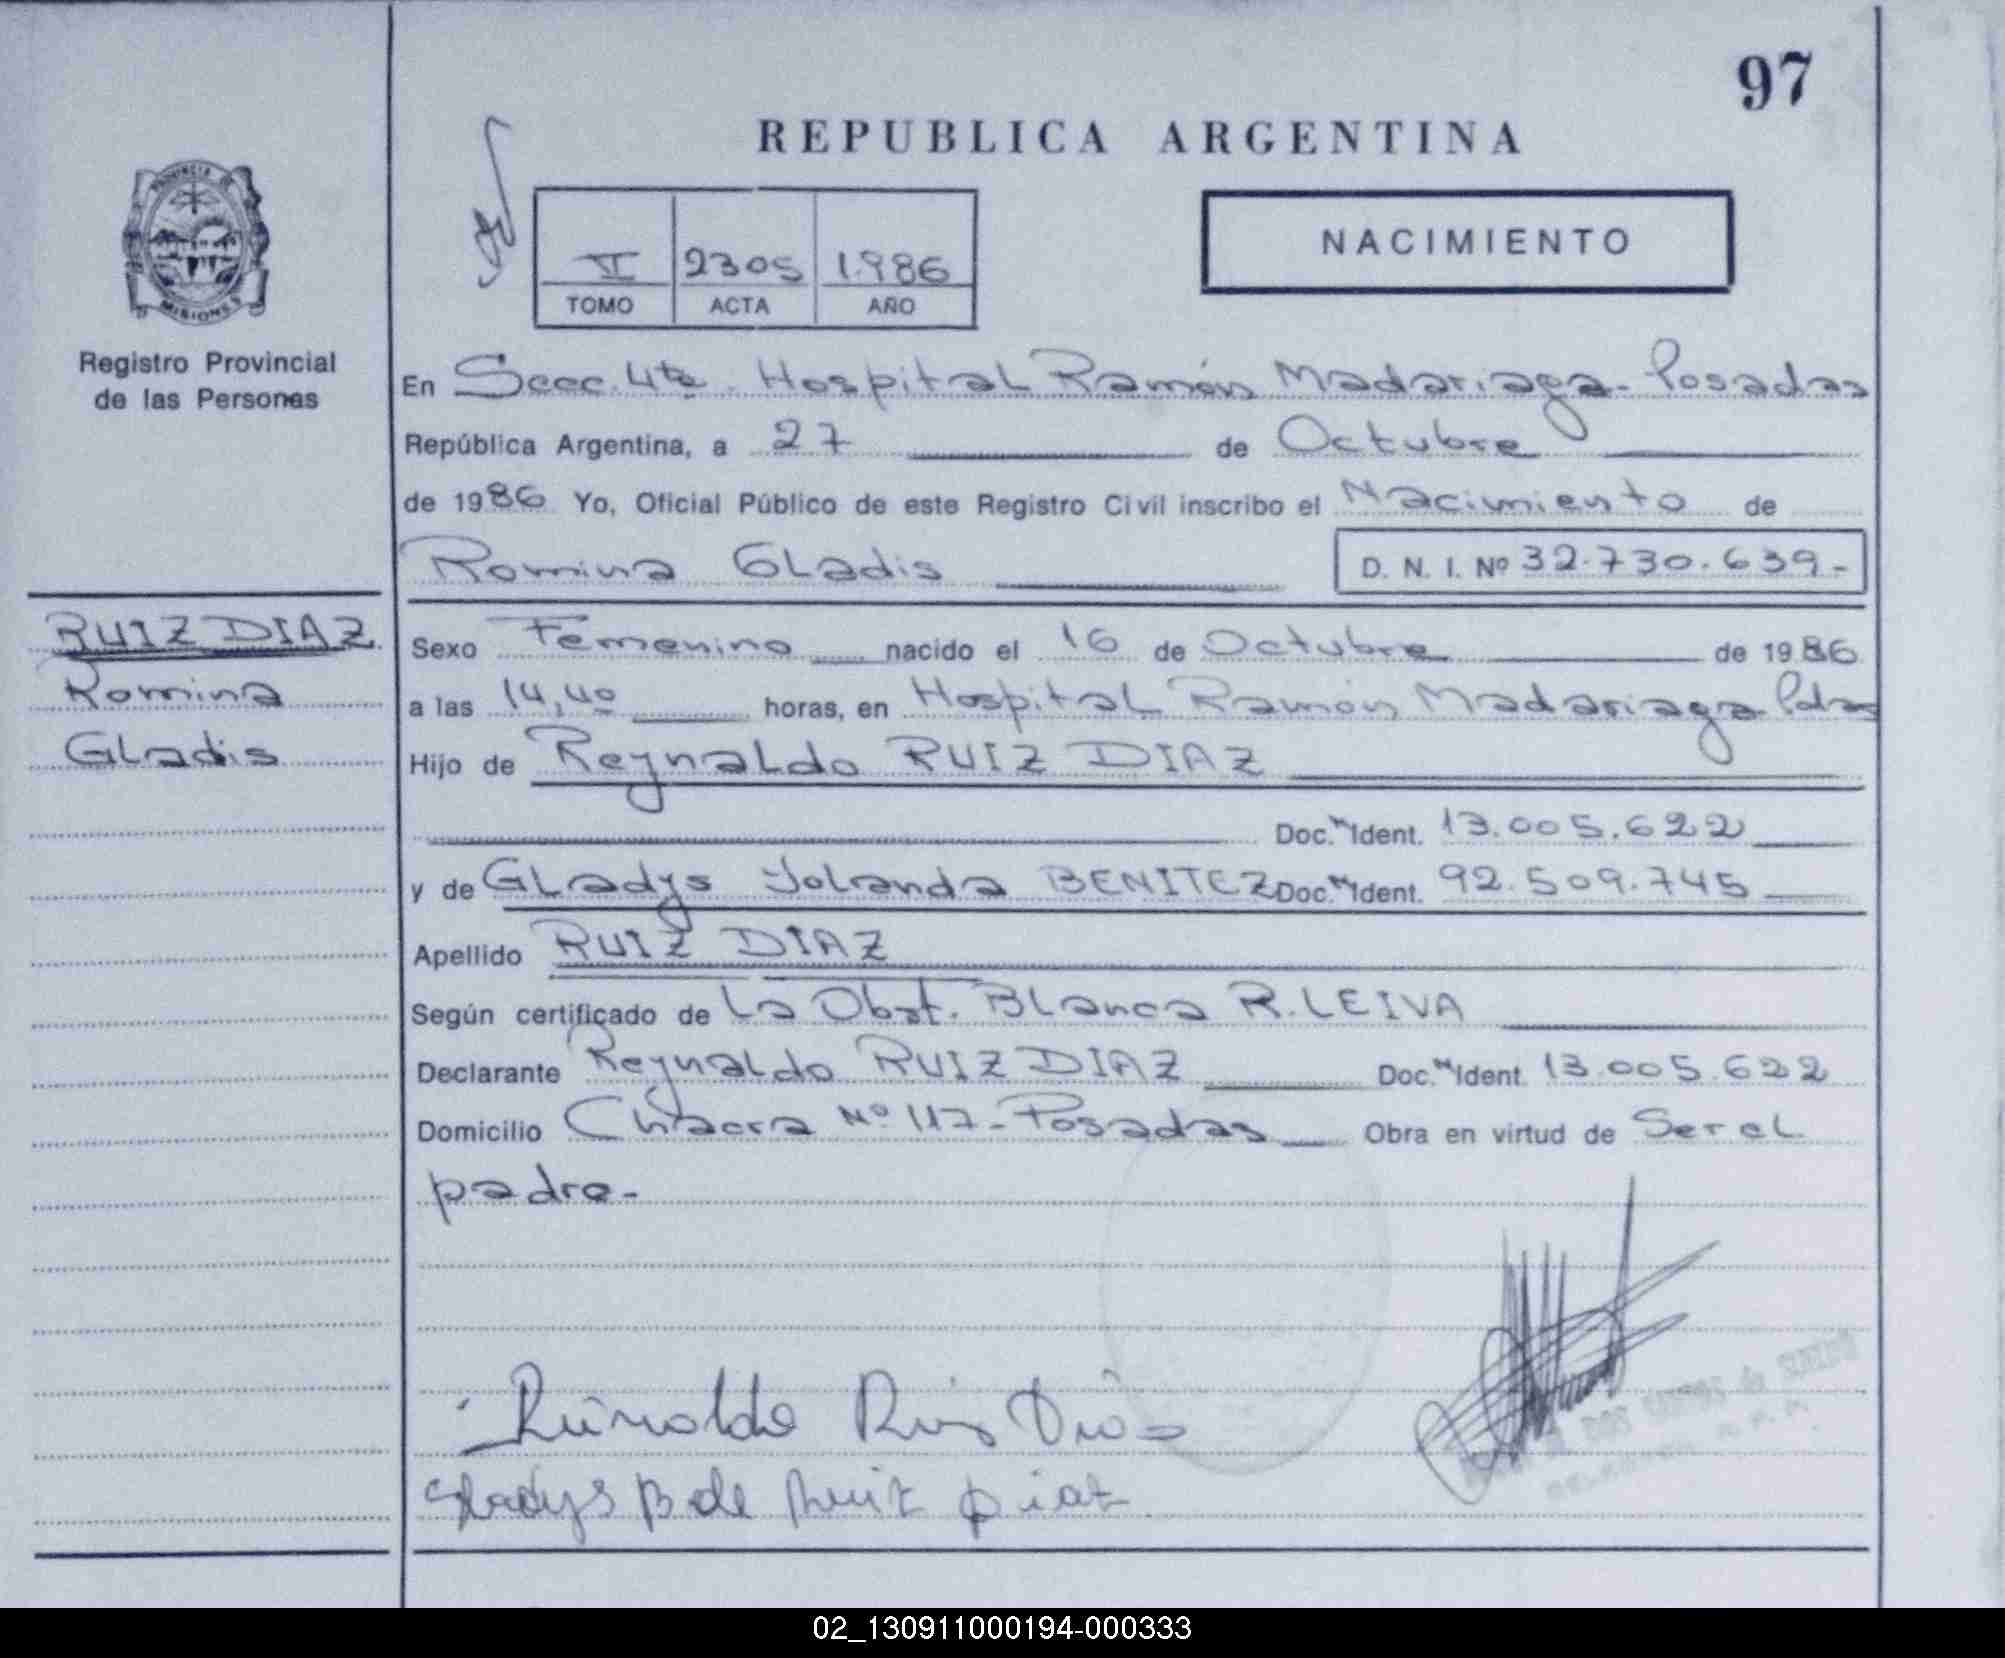 97
REPUBLICA ARGENTINA
PROVINCIA DE
MISIONES
Registro Provincial
de las Personas
VI 2305 1.986
TOMO ACTA AÑO
NACIMIENTO
En Secc. 4ta. Hospital Ramón Madariaga - Posadas
República Argentina, a 27 de Octubre
de 1986 Yo, Oficial Público de este Registro Civil inscribo el Nacimiento de
Romina Gladis D. N. I. Nº 32.730.639.-
RUIZ DIAZ
Romina
Gladis
Sexo Femenino nacido el 16 de Octubre de 1986
a las 14,40 horas, en Hospital Ramón Madariaga Pdas
Hijo de Reynaldo RUIZ DIAZ
Doc. Ident. 13.005.622
y de Gladys Yolanda BENITEZ Doc. Ident. 92.509.745
Apellido RUIZ DIAZ
Según certificado de La Obst. Blanca R. LEIVA
Declarante Reynaldo RUIZ DIAZ Doc. Ident. 13.005.622
Domicilio Chacra Nº 117 - Posadas Obra en virtud de Ser el
padre -
Reinaldo Ruis Dias
Gladys B de Ruiz Diaz
02_130911000194-000333